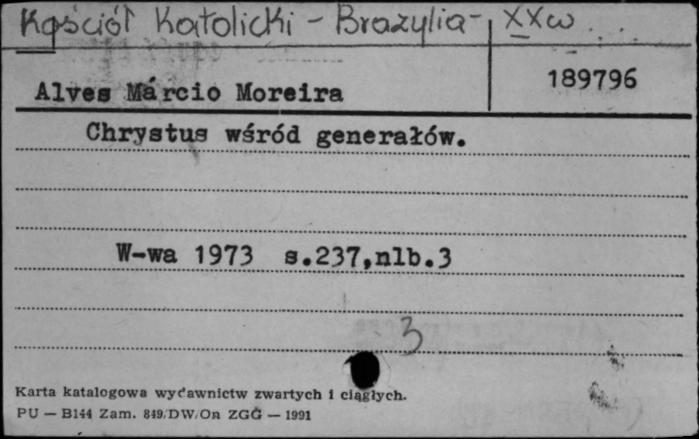 Kościół Katolicki - Brazylia - XXw
Alves Márcio Moreira 189796
Chrystus wśród generałów.
W-wa 1973 s.237,nlb.3
3
Karta katalogowa wydawnictw zwartych i ciągłych.
PU — B144 Zam. 849/DW/On ZGG — 1991